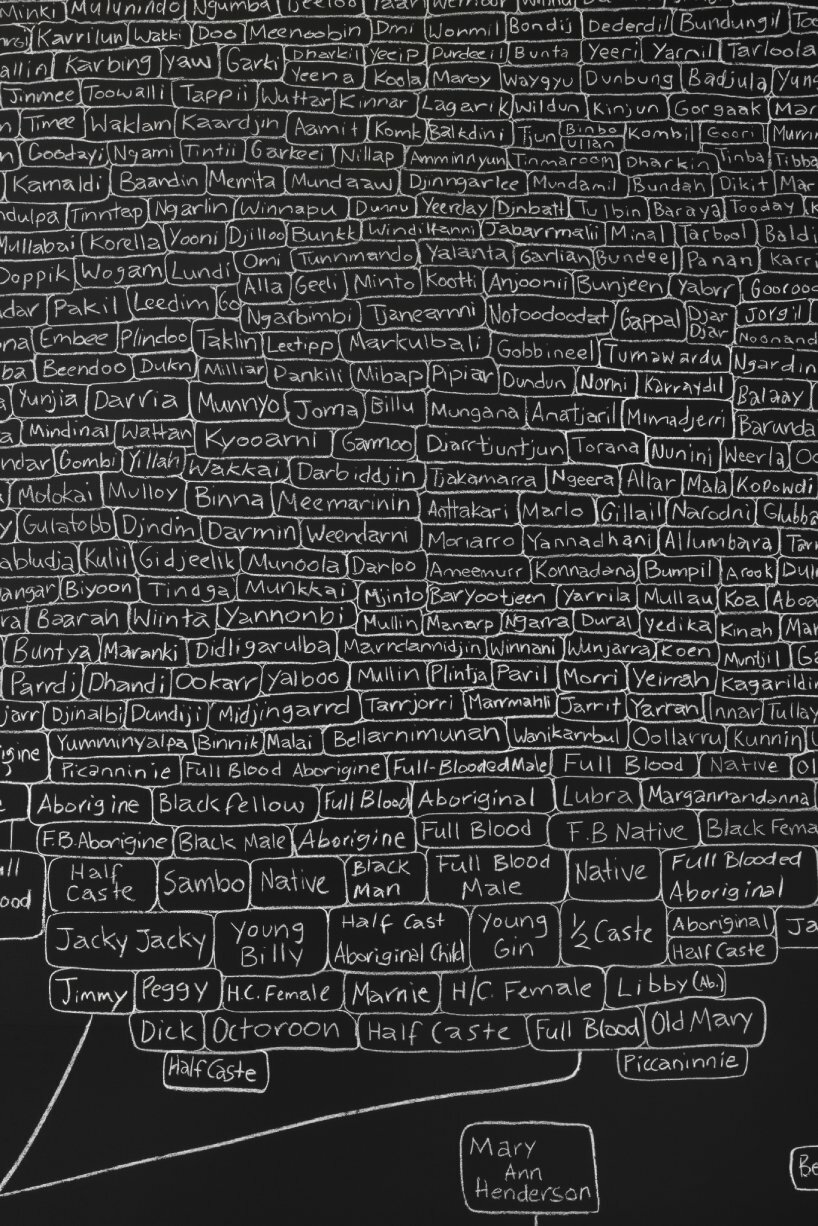 Minki Mulunindo Ngumba
Karrilun Wakki Doo Meenoobin Dmi Wonmil Bondij Dederdil Bundungil
Karbing Yaw Garki Dharkil Yeeip Purdeeil Bunta Yeeri Yarmil Tarloola
Yeena Koola Maroy Waygyu Dunbung Badjula
Jinmee Toowalli Tappii Wuttar Kinnar Lagarik Wildun Kinjun Gorgaak
Timee Waklam Kaardjin Aamit Komk Balkdini Tjun Binbo Ullan Kombil Goori
Goodayi Ngami Tintii Garkeei Nillap Amminnyun Tinmaroom Dharkin Tinba
Kamaldi Baandin Merrita Mundaaw Djinngarlee Mundamil Bundah Dikit
Tinntap Ngarlin Winnapu Dunnu Yeerday Djnbatt Tulbin Baraya Tooday
Mullabai Korella Yooni Djilloo Bunkk Jabarrmalii Minal Tarbool
Doppik Wogam Lundi Omi Tunnmando Yalanta Garlian Bundeel Panan
Alla Geeli Minto Kootti Anjoonii Bunjeen Yabrr
Pakil Leedim Ngarbimbi Tjanearnni Notoodoodat Gappal Djar Djar Jorgil
Embee Plindoo Taklin Leetipp Markulbali Gobbineel Turnawardu Ngardin
Beendoo Dukn Milliar Pankili Mibap Pipiar Dundun Nonni Karraydil
Yunjia Darria Munnyo Joma Billu Mungana Anatjaril Mimadjerri
Mindinal Wattan Kyooarni Garmoo Djarrtjuntjun Torana Nunini Weerla
Gombi Yillah Wakkai Darbiddjin Tjakamarra Ngeera Allar Mala Kopowdi
Molokai Mulloy Binna Meemarinin Anttakari Marlo Gillail Narodni
Gulatobb Djndin Darmin Weendarni Moriarro Yannadhani Allumbara
Kulil Gidjeelik Munoola Darloo Ameemurr Konnadana Bumpil Arook
Biyoon Tindga Munkkai Mjinto Baryootjeen Yarrila Mullau Koa
Baarah Wiinta Yannonbi Mullin Manarp Ngarra Dural Yedika Kinah
Buntya Maranki Didligarulba Marrdannidjin Winnani Wunjarra Koen Muntjil
Parrdi Dhandi Ookarr Yalboo Mullin Plintja Paril Morri Yeirrah Kagarildin
Djinalbi Dundiji Midjingarrd Tarrjorri Marnmahli Jarrit Yarran Innar
Yumminyalpa Binnik Malai Bellarnimunah Wanikarnbul Oollarru Kunnin
Picanninie Full Blood Aborigine Full-Blooded Male Full Blood Native
Aborigine Blackfellow Full Blood Aboriginal Lubra Margannandanna
F.B.Aborigine Black Male Aborigine Full Blood F.B Native Black
Half Caste Sambo Native Black Man Full Blood Male Native Full Blooded Aboriginal
Jacky Jacky Young Billy Half Cast Aboriginal Child Young Gin ½ Caste Aboriginal
Half Caste
Jimmy Peggy H.C. Female Marnie H/C. Female Libby (Ab.)
Dick Octoroon Half Caste Full Blood Old Mary
Half Caste Piccaninnie
Mary
Ann
Henderson